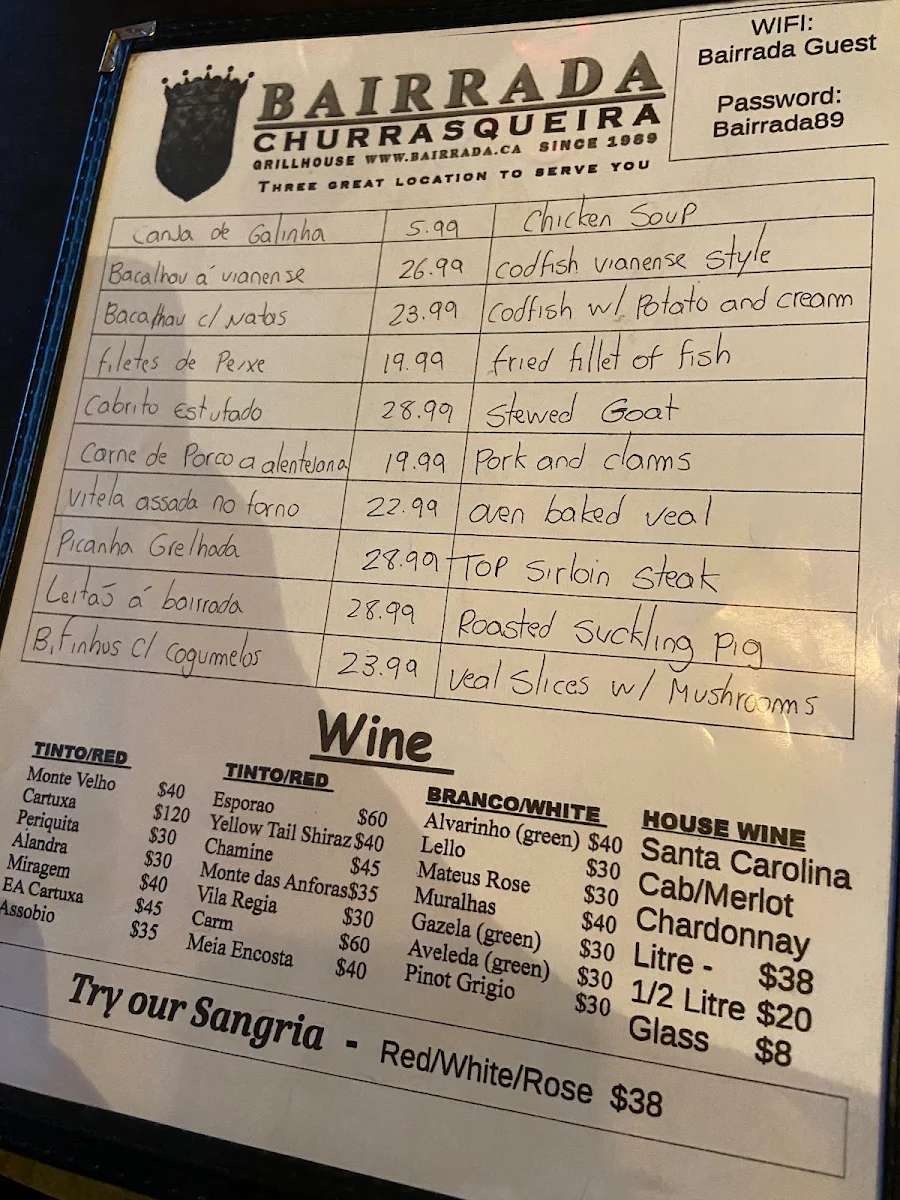 WIFI:
Bairrada Guest
Password:
Bairrada89
BAIRRADA
CHURRASQUEIRA
GRILLHOUSE WWW.BAIRRADA.CA SINCE 1989
THREE GREAT LOCATION TO SERVE YOU
Canja de Galinha 5.99 Chicken Soup
Bacalhau á vianense 26.99 codfish vianense style
Bacalhau c/ natas 23.99 codfish w/ Potato and cream
filetes de Peixe 19.99 fried fillet of fish
Cabrito Estufado 28.99 Stewed Goat
Carne de Porco a alentejana 19.99 Pork and clams
Vitela assada no forno 22.99 oven baked veal
Picanha Grelhada 28.99 Top Sirloin Steak
Leitaõ á bairrada 28.99 Roasted Suckling Pig
Bifinhos c/ cogumelos 23.99 Veal Slices w/ Mushrooms
Wine
TINTO/RED
Monte Velho $40
Cartuxa $120
Periquita $30
Alandra $30
Miragem $40
EA Cartuxa $45
Assobio $35
TINTO/RED
Esporao $60
Yellow Tail Shiraz $40
Chamine $45
Monte das Anforas $35
Vila Regia $30
Carm $60
Meia Encosta $40
BRANCO/WHITE
Alvarinho (green) $40
Lello $30
Mateus Rose $30
Muralhas $40
Gazela (green) $30
Aveleda (green) $30
Pinot Grigio $30
HOUSE WINE
Santa Carolina
Cab/Merlot
Chardonnay
Litre - $38
1/2 Litre $20
Glass $8
Try our Sangria - Red/White/Rose $38